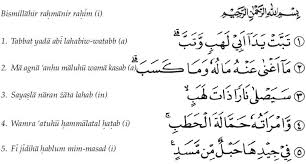 Bismillāhir raḥmānir raḥīm (i) بِسْمِ اللّٰهِ الرَّحْمٰنِ الرَّحِيْمِ
1. Tabbat yadā abī lahabiw-watabb (a) تَبَّتْ يَدَآ اَبِيْ لَهَبٍ وَّتَبَّ ۝١
2. Mā agnā ‘anhu māluhū wamā kasab (a) مَآ اَغْنٰى عَنْهُ مَالُهٗ وَمَا كَسَبَ ۝٢
3. Sayaṣlā nāran żāta lahab (in) سَيَصْلٰى نَارًا ذَاتَ لَهَبٍ ۝٣
4. Wamra ‘atuhū ḥammālatal ḥaṭab (i) وَّامْرَاَتُهٗ حَمَّالَةَ الْحَطَبِ ۝٤
5. Fī jīdihā ḥablum mim masad (in) فِيْ جِيْدِهَا حَبْلٌ مِّنْ مَّسَدٍ ۝٥